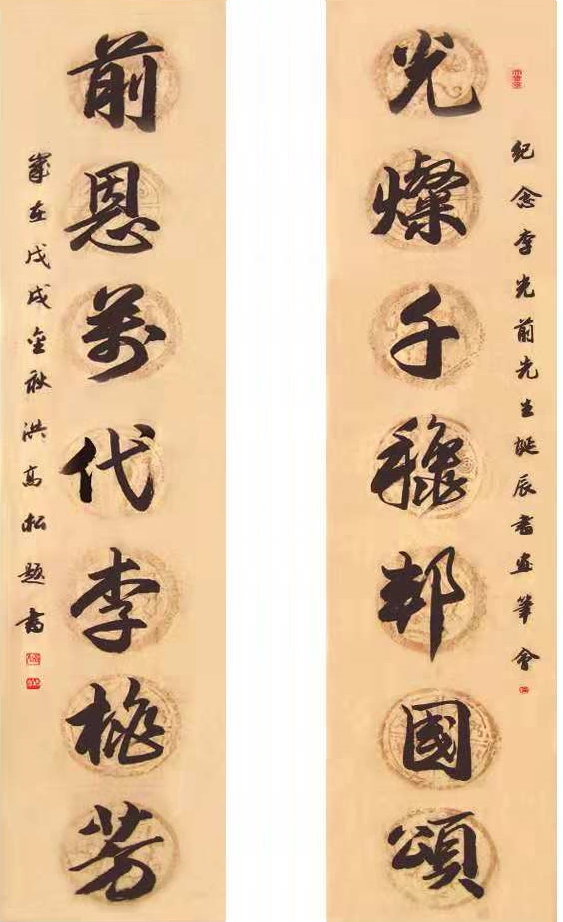 紀念李光前先生誕辰書画筆會
光燦千穐邦國頌
前恩萬代李桃芳
歲在戊戌金秋洪高松題書